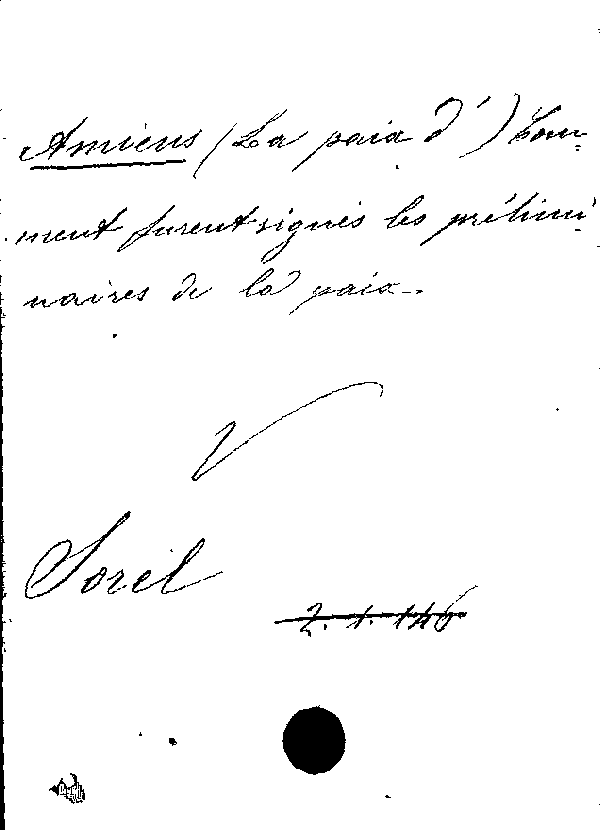 Amiens (La paix d') Com-
ment furent signés les prélimi-
naires de la paix.
V
Sorel
2.1.146